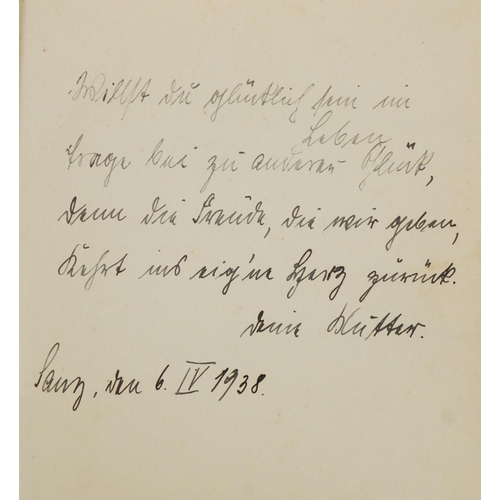 Willst du glücklich sein im
Leben
trage bei zu anderer Glück,
denn die Freude, die wir geben,
kehrt ins eig'ne Herz zurück.
deine Mutter.
den 6. IV 1938.